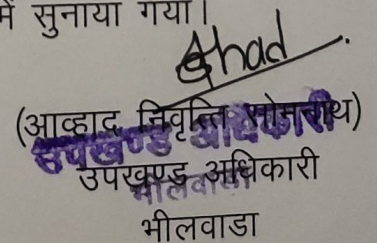 में सुनाया गया।
Ahad
(आव्हाद निवृत्ति सोमनाथ)
उपखण्ड अधिकारी
उपखण्ड अधिकारी
भीलवाडा
भीलवाडा